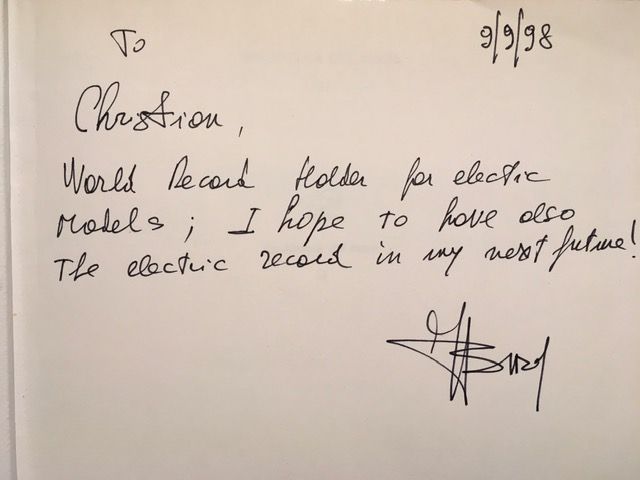 To
9/9/98
Christian,
World Record Holder for electric
models; I hope to have also
the electric record in my next future!